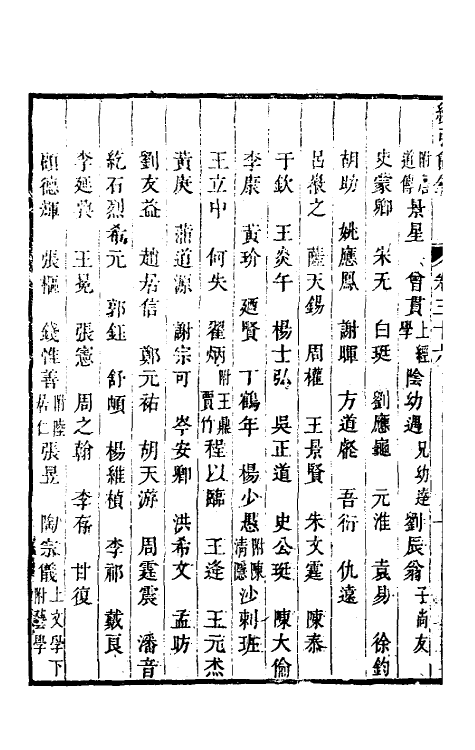 道傳 景星 曾貫上經學 陰幼遇兄幼達 劉辰翁子尚友
史蒙卿 宋无 白珽 劉應龜 元淮 袁易 徐鈞
胡助 姚應鳳 謝暉 方道叡 吾衍 仇遠
呂徽之 薩天錫 周權 王景賢 朱文霆 陳泰
于欽 王炎午 楊士弘 吳正道 史公珽 陳大倫
李康 黃玠 迺賢 丁鶴年 楊少愚附陳清隱 沙剌班
王立中 何失 翟炳附王鼎賈竹 程以臨 王逢 王元杰
黃庚 蒲道源 謝宗可 岑安卿 洪希文 孟昉
劉友益 趙居信 鄭元祐 胡天游 周霆震 潘音
紇石烈希元 郭鈺 舒頔 楊維楨 李祁 戴良
李延興 王冕 張憲 周之翰 李存 甘復
顧德輝 張樞 錢惟善附陸居仁 張昱 陶宗儀上文學下附藝學